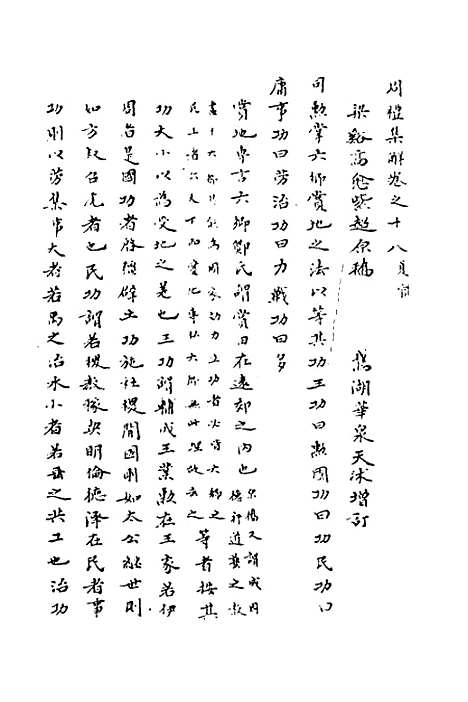 周禮集解卷之十八夏官
梁谿高愈紫超原稿 鵞湖華泉天沐增訂
司勲掌六鄉賞地之法以等其功王功曰勲國功曰功民功曰
庸事功曰勞治功曰力戰功曰多
賞地專言六鄉鄭氏謂賞田在遠郊之內也
等者按其
功大小以為受地之差也王功謂輔成王業勲在王家若伊
周皆是國功者啓疆闢土功施社稷間國則如太公
如方叔召虎者也民功謂若稷教稼契明倫德澤在民者事
功則以勞集事大者若禹之治水小者若垂之共工也治功